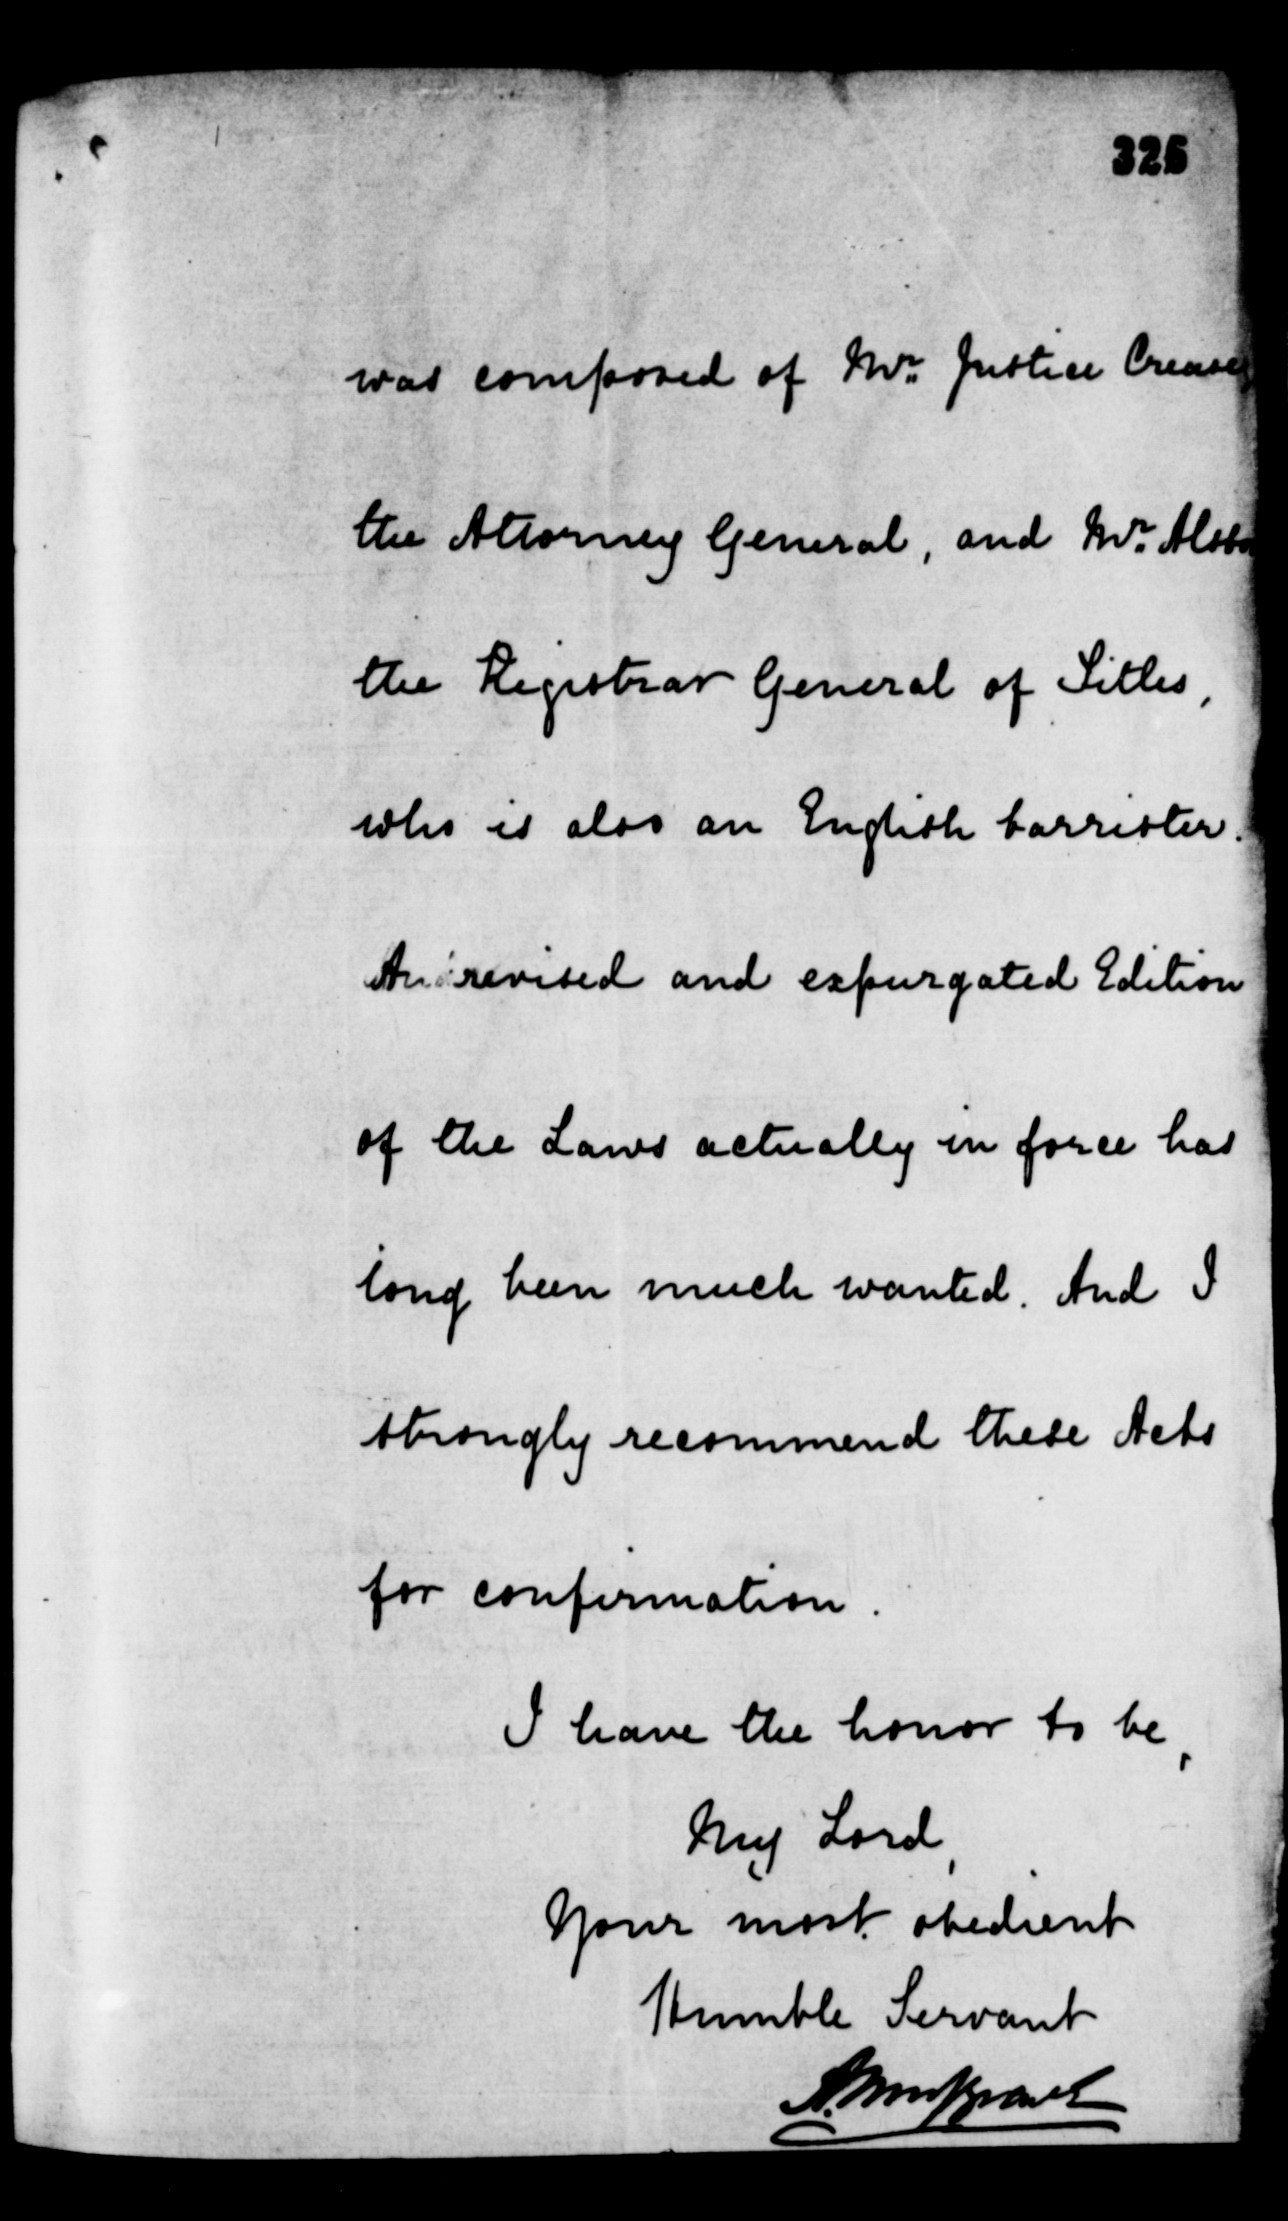 325
was composed of Mr. Justice Crease
the Attorney General, and Mr. Alsto
the Registrar General of Titles,
who is also an English barrister.
A revised and expurgated Edition
of the Laws actually in force has
long been much wanted. And I
strongly recommend these Acts
for confirmation.
I have the honor to be,
My Lord,
Your most obedient
Humble Servant
A. Musgrave